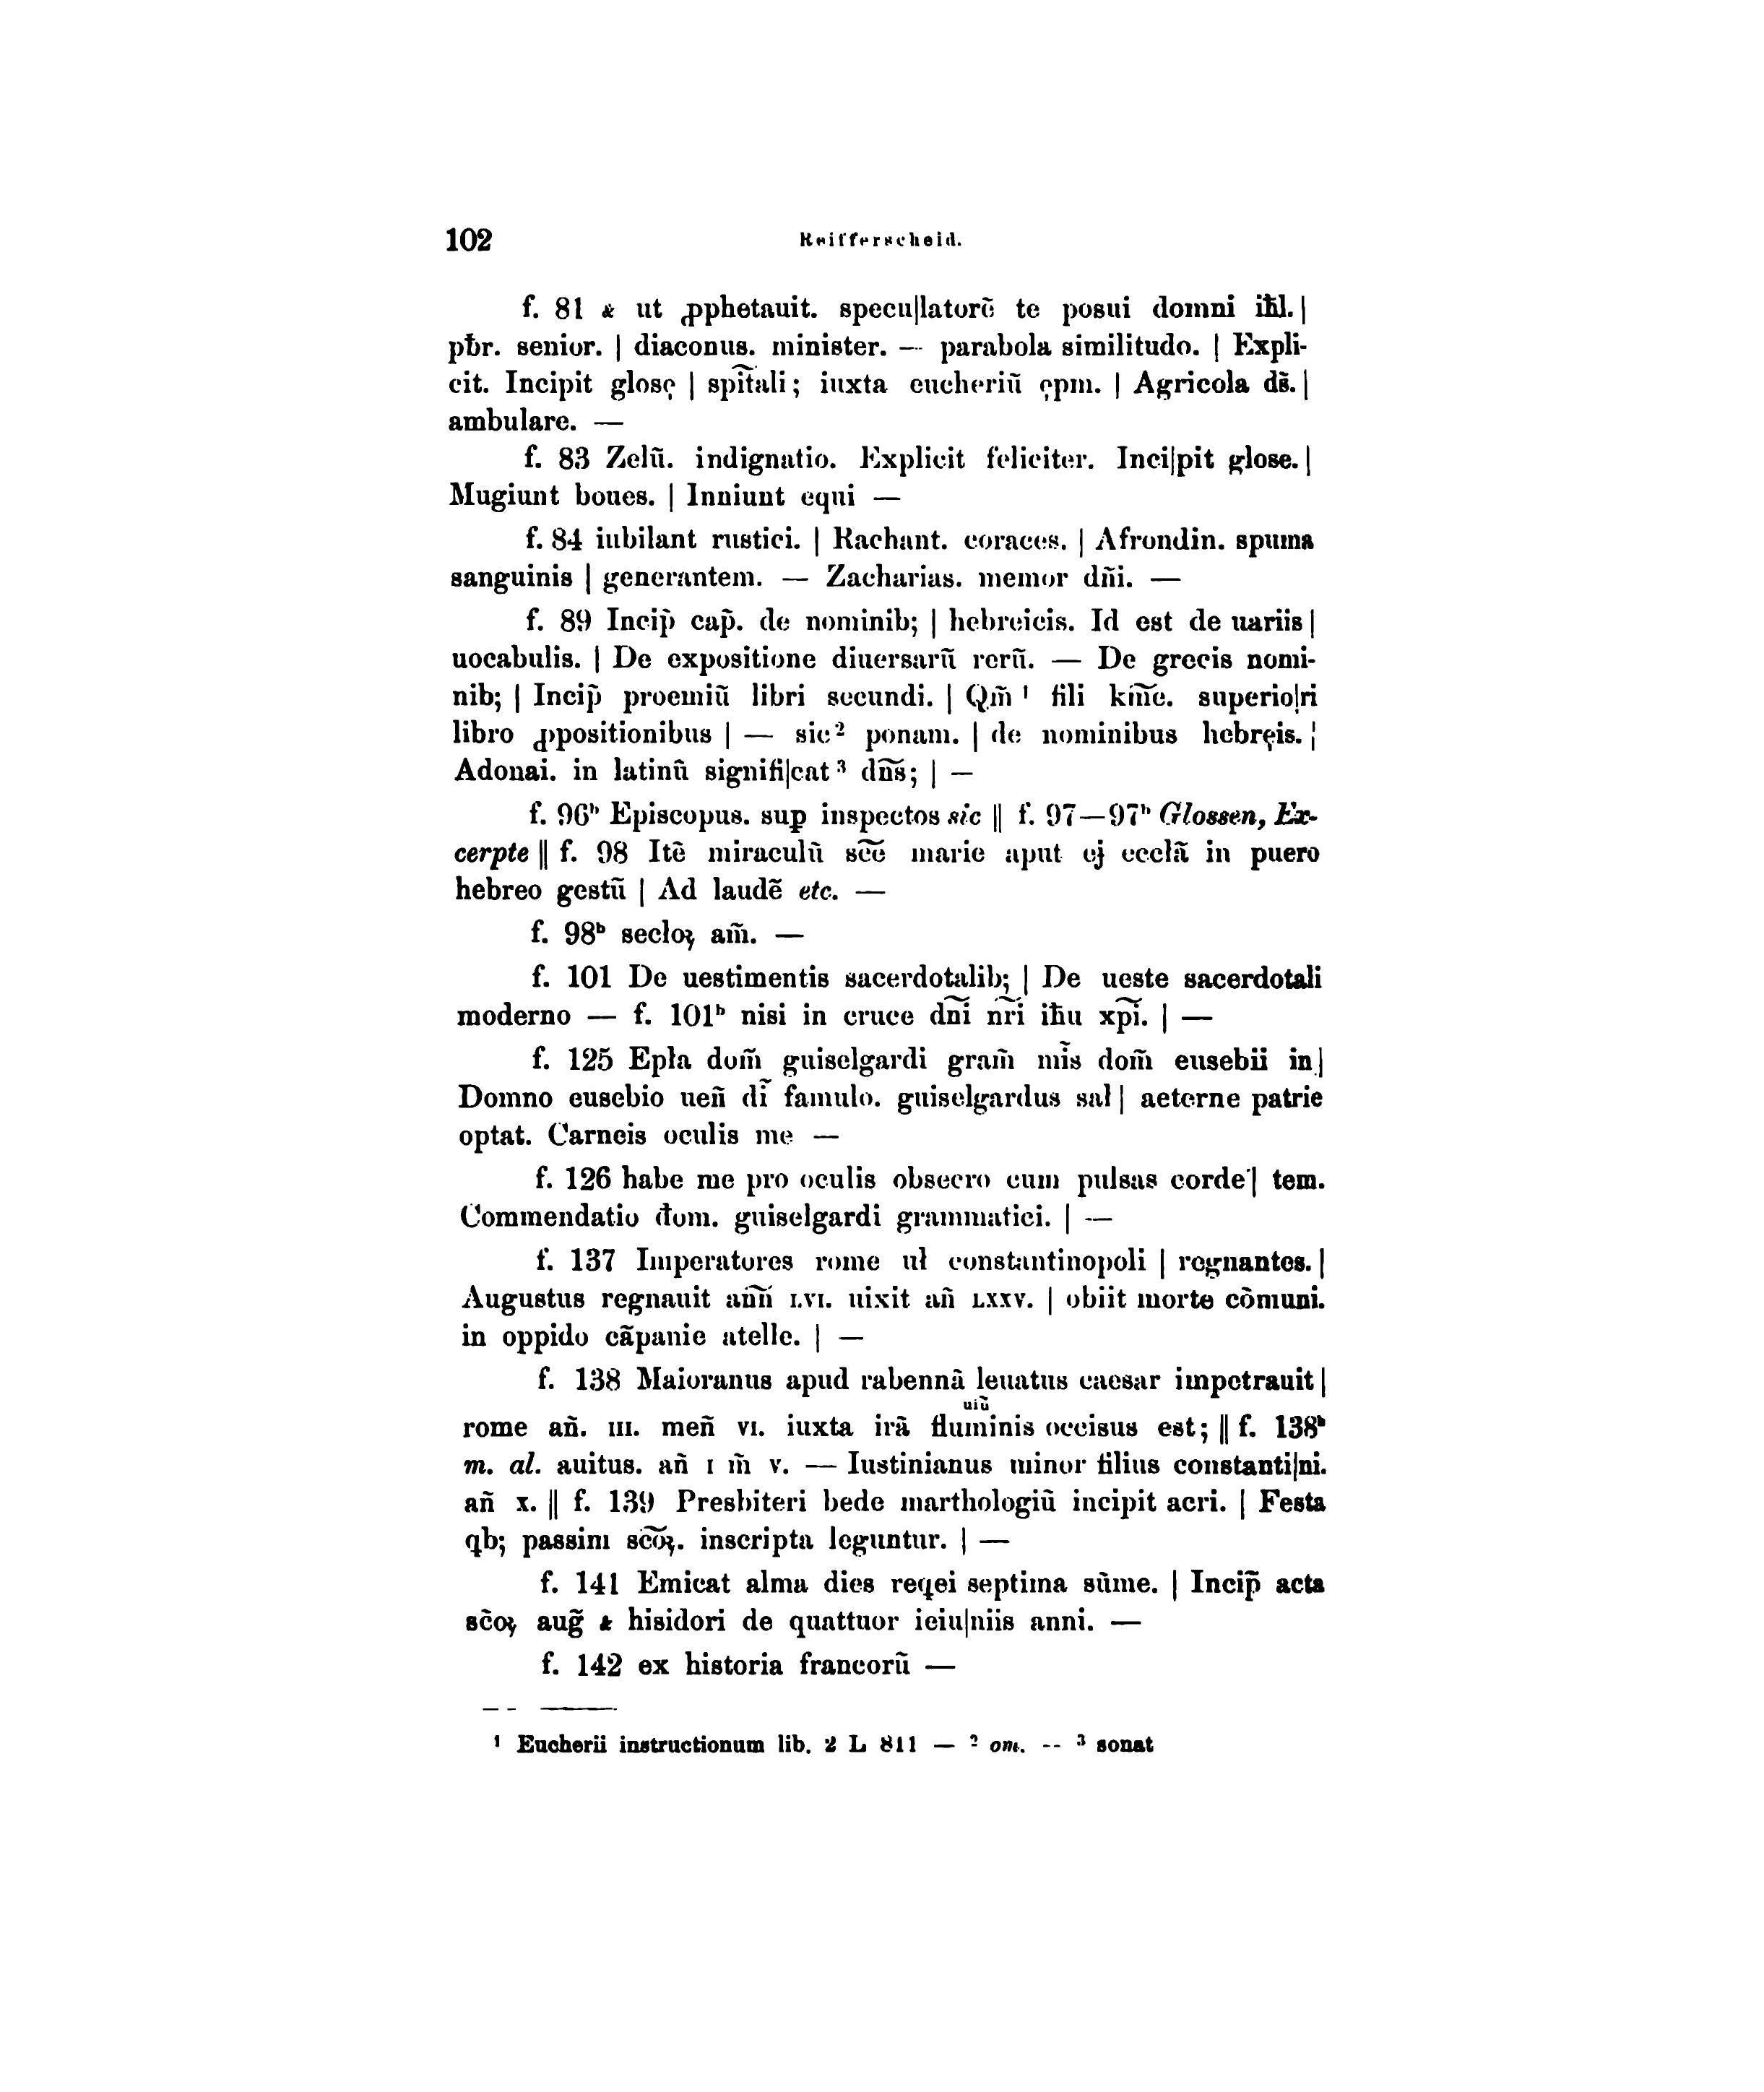 102 Reifferscheid.
f. 81 & ut ꝓphetauit. specu|latorē te posui domni iħl. |
pƀr. senior. | diaconus. minister. — parabola similitudo. | Expli-
cit. Incipit glosę | spi͠tali; iuxta eucheriū ępm. | Agricola ds̄. |
ambulare. —
f. 83 Zelū. indignatio. Explicit feliciter. Inci|pit glose. |
Mugiunt boues. | Inniunt equi —
f. 84 iubilant rustici. | Rachant. coraces. | Afrondin. spuma
sanguinis | generantem. — Zacharias. memor dn̄i. —
f. 89 Incip̄ cap̄. de nominib; | hebreicis. Id est de uariis |
uocabulis. | De expositione diuersarū rerū. — De grecis nomi-
nib; | Incip̄ proemiū libri secundi. | Qm̄ ¹ fili km̄e. superio|ri
libro ꝓpositionibus | — sic ² ponam. | de nominibus hebręis. |
Adonai. in latinū signifi|cat ³ dn̄s; | —
f. 96ᵇ Episcopus. suꝑ inspectos sic || f. 97—97ᵇ Glossen, Ex-
cerpte || f. 98 Itē miraculū sc̄ē marie aput ej ecclā in puero
hebreo gestū | Ad laudē etc. —
f. 98ᵇ secloꝝ am̄. —
f. 101 De uestimentis sacerdotalib; | De ueste sacerdotali
moderno — f. 101ᵇ nisi in cruce dn̄i nr̄i iħu xp̄i. | —
f. 125 Epła dom̄ guiselgardi gram̄ mīs dom̄ eusebii in |
Domno eusebio uen̄ dī famulo. guiselgardus sał | aeterne patrie
optat. Carneis oculis me —
f. 126 habe me pro oculis obsecro cum pulsas corde | tem.
Commendatio đom. guiselgardi grammatici. | —
f. 137 Imperatores rome uł constantinopoli | regnantes. |
Augustus regnauit an̄n̄ LVI. uixit an̄ LXXV. | obiit morte cōmuni.
in oppido cāpanie atelle. | —
f. 138 Maioranus apud rabennā leuatus caesar impetrauit |
uiū
rome an̄. III. men̄ VI. iuxta irā fluminis occisus est; || f. 138ᵇ
m. al. auitus. an̄ I m̄ V. — Iustinianus minor filius constanti|ni.
an̄ X. || f. 139 Presbiteri bede marthologiū incipit acri. | Festa
qb; passim sc̄oꝝ. inscripta leguntur. | —
f. 141 Emicat alma dies reqei septima sūme. | Incip̄ acta
sc̄oꝝ auḡ & hisidori de quattuor ieiu|niis anni. —
f. 142 ex historia francorū —
¹ Eucherii instructionum lib. 2 L 811 — ² om. -- ³ sonat